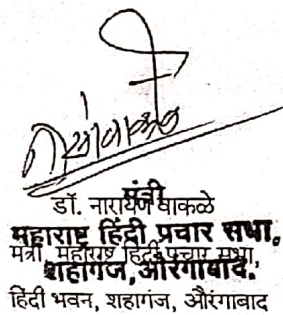 मंत्री
डॉ. नारायण वाकळे
महाराष्ट्र हिंदी प्रचार सभा,
मंत्री, महाराष्ट्र हिंदी प्रचार सभा,
शहागंज, औरंगाबाद.
हिंदी भवन, शहागंज, औरंगाबाद